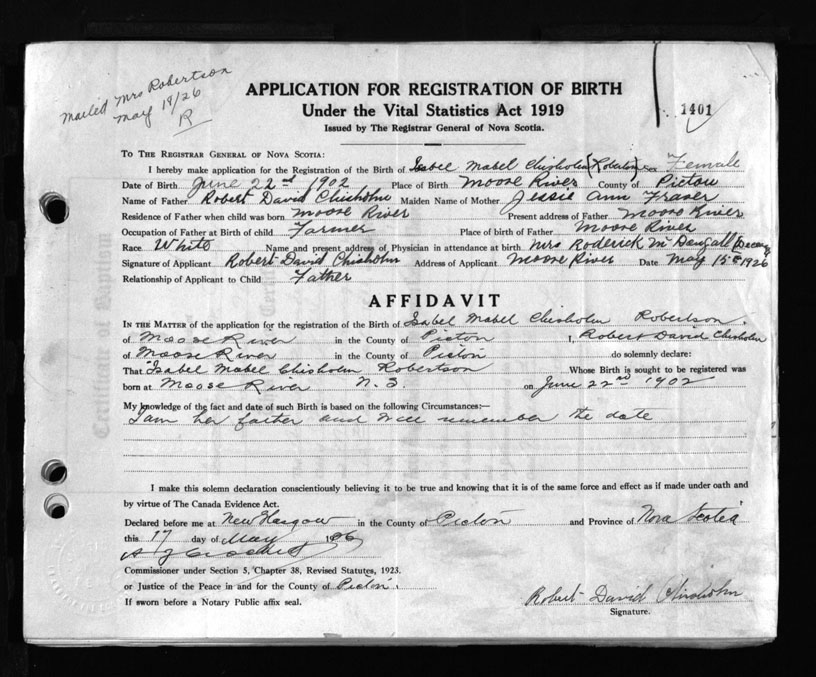 Mailed Mrs Robertson
May 18/26
R
1401
APPLICATION FOR REGISTRATION OF BIRTH
Under the Vital Statistics Act 1919
Issued by The Registrar General of Nova Scotia.
TO THE REGISTRAR GENERAL OF NOVA SCOTIA:
I hereby make application for the Registration of the Birth of Isabel Mabel Chisholm (Robertson) Sex Female
Date of Birth June 22nd 1902 Place of Birth Moose River County of Pictou
Name of Father Robert David Chisholm Maiden Name of Mother Jessie Ann Fraser
Residence of Father when child was born Moose River Present address of Father Moose River
Occupation of Father at Birth of child Farmer Place of birth of Father Moose River
Race White Name and present address of Physician in attendance at birth Mrs Roderick McDougall
Signature of Applicant Robert David Chisholm Address of Applicant Moose River Date May 15 1926
Relationship of Applicant to Child Father
AFFIDAVIT
IN THE MATTER of the application for the registration of the Birth of Isabel Mabel Chisholm Robertson.
of Moose River in the County of Picton I, Robert David Chisholm
of Moose River in the County of Picton do solemnly declare:
That Isabel Mabel Chisholm Robertson Whose Birth is sought to be registered was
born at Moose River N.S on June 22nd 1902
My knowledge of the fact and date of such Birth is based on the following Circumstances:—
I am her father and well remember the date
I make this solemn declaration conscientiously believing it to be true and knowing that it is of the same force and effect as if made under oath and
by virtue of The Canada Evidence Act.
Declared before me at New Glasgow in the County of Picton and Province of Nova Scotia
this 17 day of May 1926
Commissioner under Section 5, Chapter 38, Revised Statutes, 1923.
or Justice of the Peace in and for the County of Picton.
If sworn before a Notary Public affix seal.
Robert David Chisholm
Signature.
Certificate of Baptism